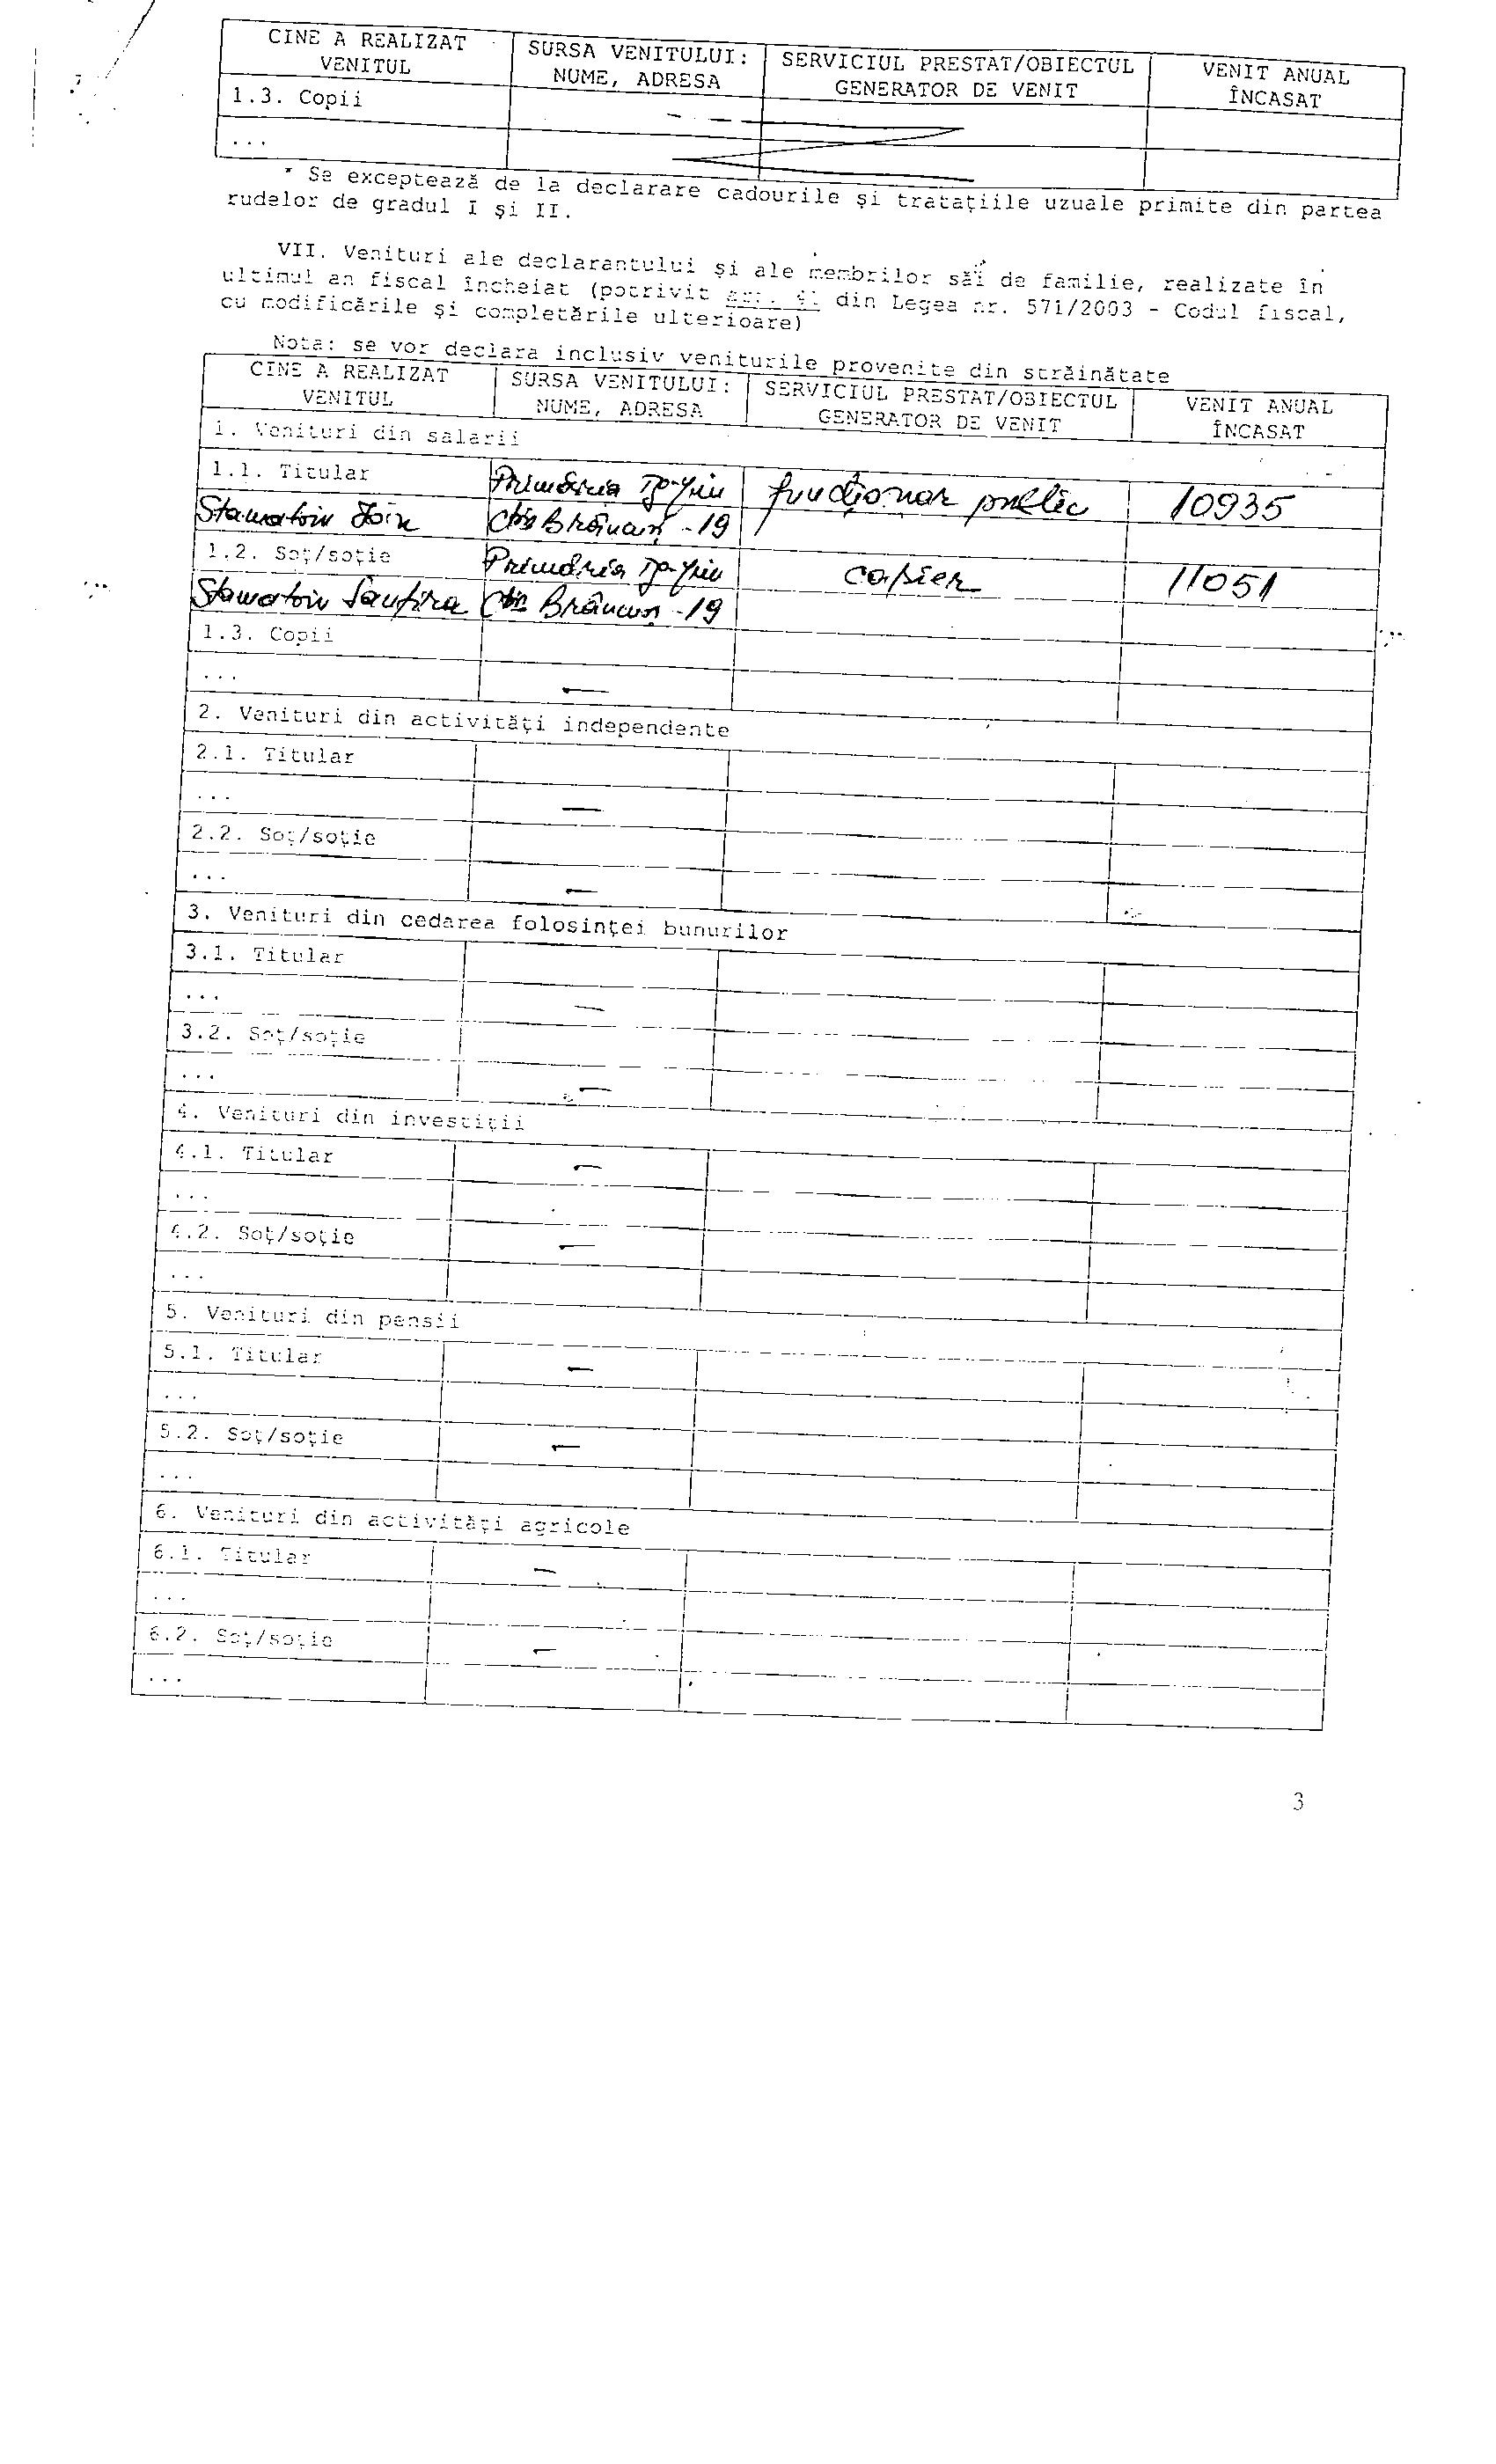 CINE A REALIZAT VENITUL | SURSA VENITULUI: NUME, ADRESA | SERVICIUL PRESTAT/OBIECTUL GENERATOR DE VENIT | VENIT ANUAL ÎNCASAT
1.3. Copii
...
* Se exceptează de la declarare cadourile şi trataţiile uzuale primite din partea
rudelor de gradul I şi II.
VII. Venituri ale declarantului şi ale membrilor săi de familie, realizate în
ultimul an fiscal încheiat (potrivit art. 41 din Legea nr. 571/2003 - Codul fiscal,
cu modificările şi completările ulterioare)
Nota: se vor declara inclusiv veniturile provenite din străinătate
CINE A REALIZAT VENITUL | SURSA VENITULUI: NUME, ADRESA | SERVICIUL PRESTAT/OBIECTUL GENERATOR DE VENIT | VENIT ANUAL ÎNCASAT
1. Venituri din salarii
1.1. Titular | Primăria Tg-Jiu | funcţionar public | 10935
Stamatoiu | Brâncuşi -19
1.2. Soţ/soţie | Primăria Tg-Jiu | casier | 11051
Stamatoiu | Brâncuşi -19
1.3. Copii
... | —
2. Venituri din activităţi independente
2.1. Titular
... | —
2.2. Soţ/soţie
... | —
3. Venituri din cedarea folosinţei bunurilor
3.1. Titular
... | —
3.2. Soţ/soţie
... | —
4. Venituri din investiţii
4.1. Titular | —
...
4.2. Soţ/soţie | —
...
5. Venituri din pensii
5.1. Titular | —
...
5.2. Soţ/soţie | —
...
6. Venituri din activităţi agricole
6.1. Titular | —
...
6.2. Soţ/soţie | —
...
3